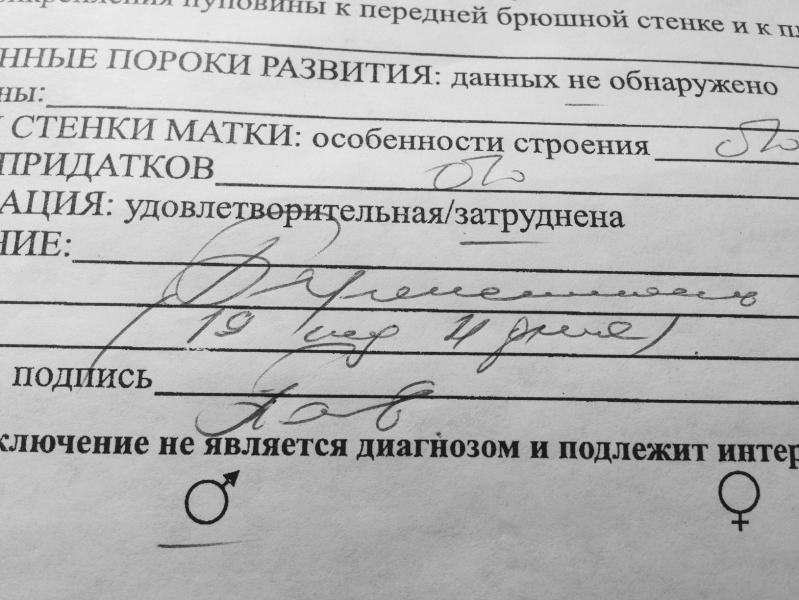 прикрепления пуповины к передней брюшной стенке и к пл
ННЫЕ ПОРОКИ РАЗВИТИЯ: данных не обнаружено
ны:
СТЕНКИ МАТКИ: особенности строения б/о
ПРИДАТКОВ б/о
АЦИЯ: удовлетворительная/затруднена
НИЕ:
Беременность
19 нед 4 дня
подпись
ключение не является диагнозом и подлежит интер
♂ ♀